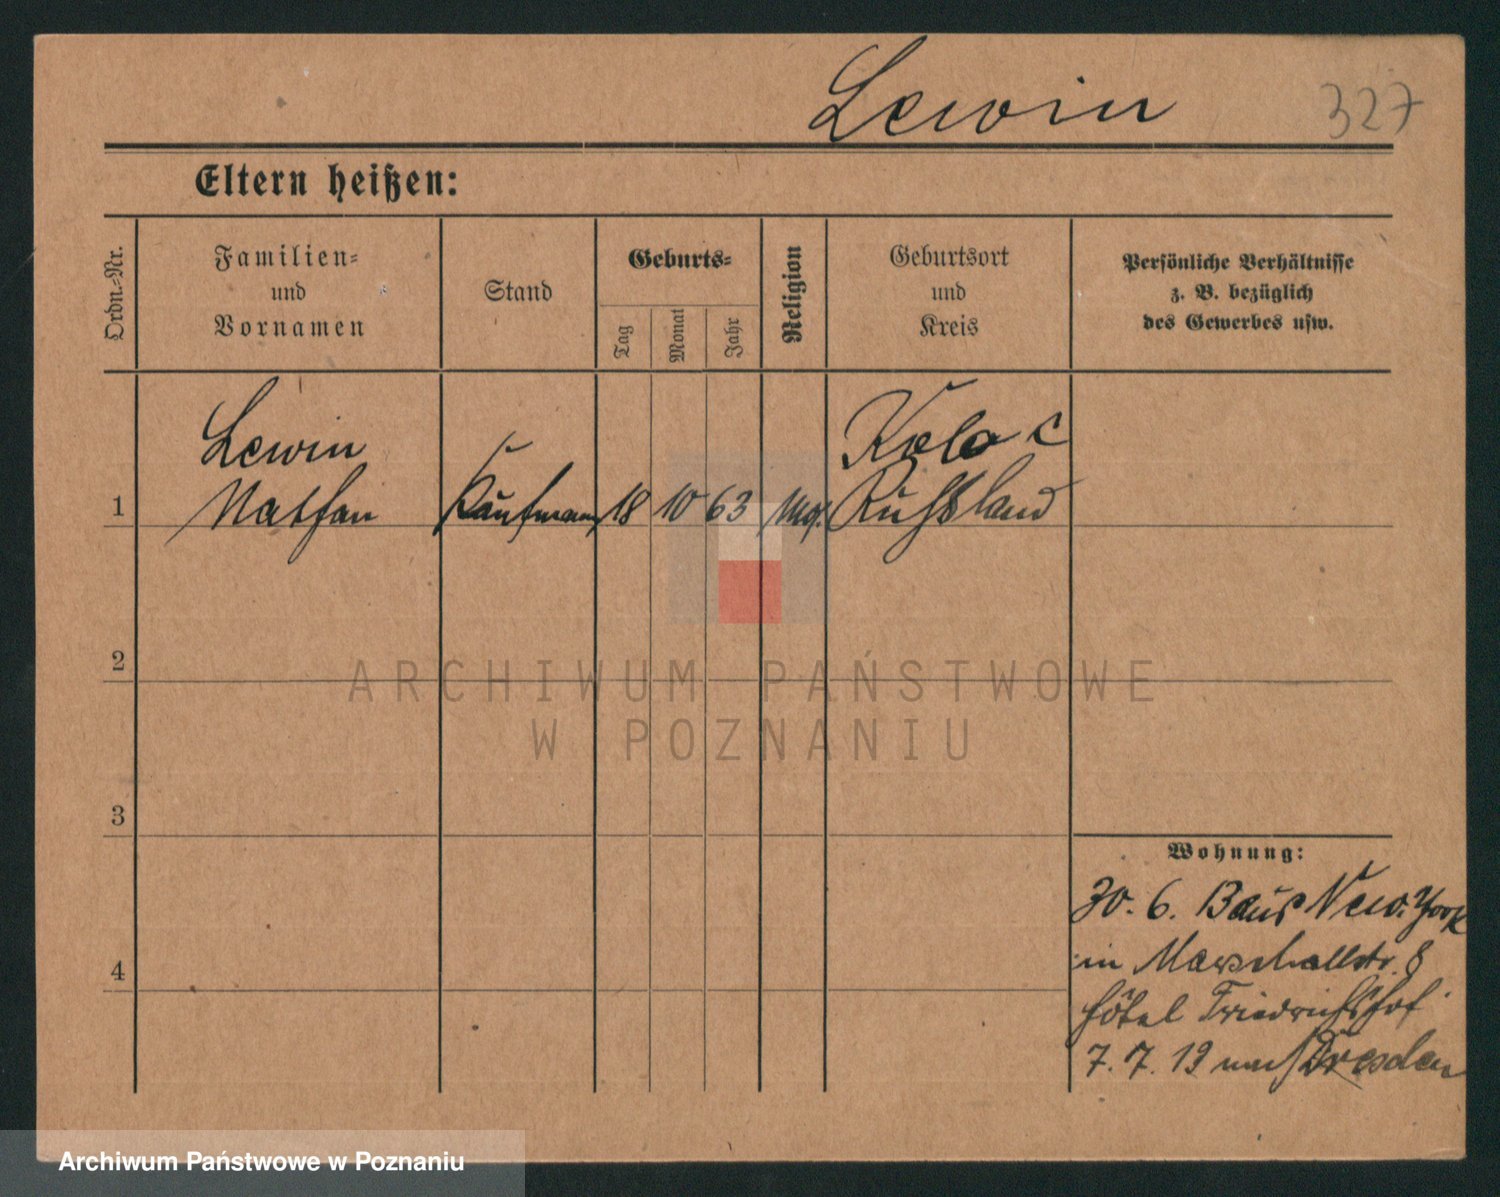 Lewin
327
Eltern heißen:
Ordn.-Nr.
Familien-
und
Vornamen
Stand
Geburts-
Tag
Monat
Jahr
Religion
Geburtsort
und
Kreis
Persönliche Verhältnisse
z. B. bezüglich
des Gewerbes usw.
1
Lewin
Nathan
Kaufmann
18
10
63
Kolo
Russland
2
3
4
Wohnung:
30. 6. aus New. York
in Marschallstr. 8
Hôtel Friedrichshof
7. 7. 19 nach Dresden
ARCHIWUM PAŃSTWOWE
W POZNANIU
Archiwum Państwowe w Poznaniu